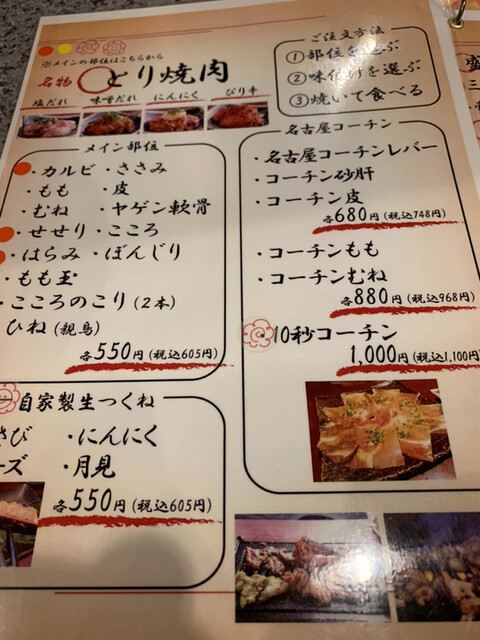 ※メインの部位はこちらから
名物 とり焼肉
塩だれ 味噌だれ にんにく ぴり辛
ご注文方法
①部位を選ぶ
②味付けを選ぶ
③焼いて食べる
メイン部位
・カルビ・ささみ
・もも ・皮
・むね ・ヤゲン軟骨
・せせり・こころ
・はらみ・ぼんじり
・もも玉
・こころのこり(2本)
ひね(親鳥)
各550円(税込605円)
名古屋コーチン
・名古屋コーチンレバー
・コーチン砂肝
・コーチン皮
各680円(税込748円)
・コーチンもも
・コーチンむね
各880円(税込968円)
10秒コーチン
1,000円(税込1,100円)
自家製生つくね
さび ・にんにく
ーズ ・月見
各550円(税込605円)
盛
三